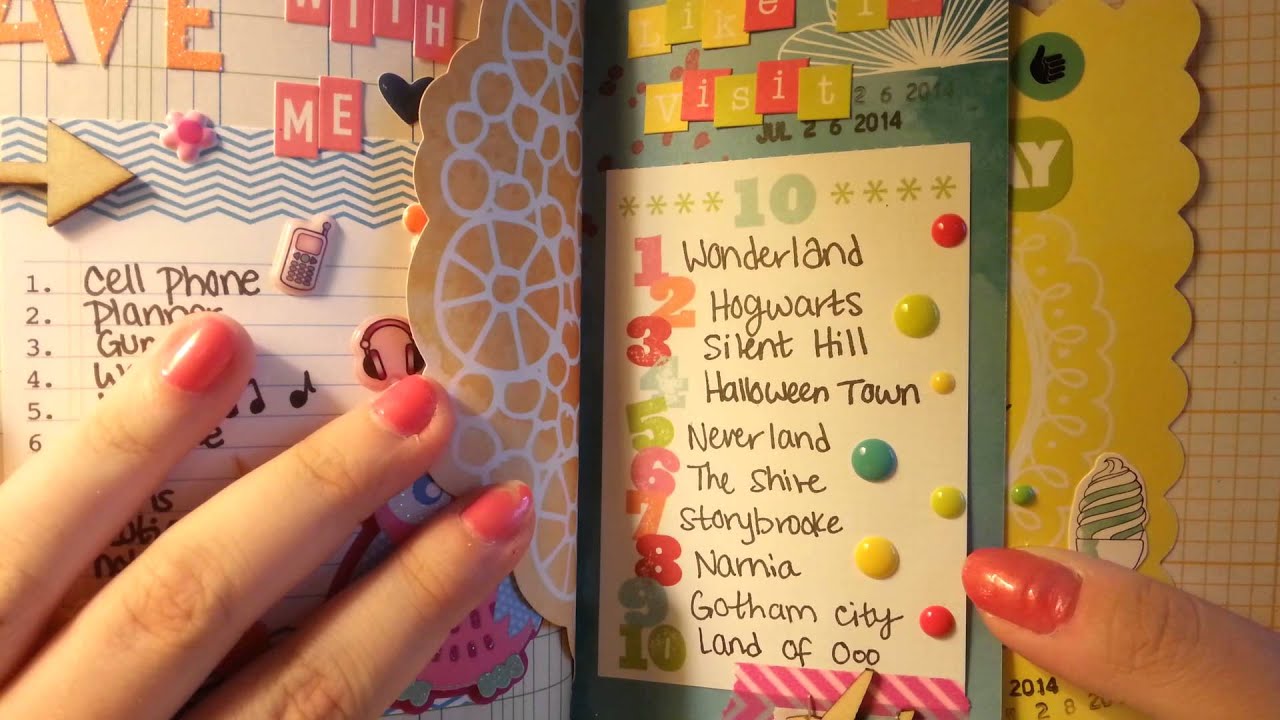 AVE
WITH
ME
1. Cell Phone
2. Planner
3.
4.
5.
6
Like To
Visit
2 6 2014
JUL 2 6 2014
**** 10 ****
1 Wonderland
2 Hogwarts
3 Silent Hill
4 Halloween Town
5 Neverland
6 The Shire
7 Storybrooke
8 Narnia
9 Gotham city
10 Land of Ooo
AY
2014
2 8 20